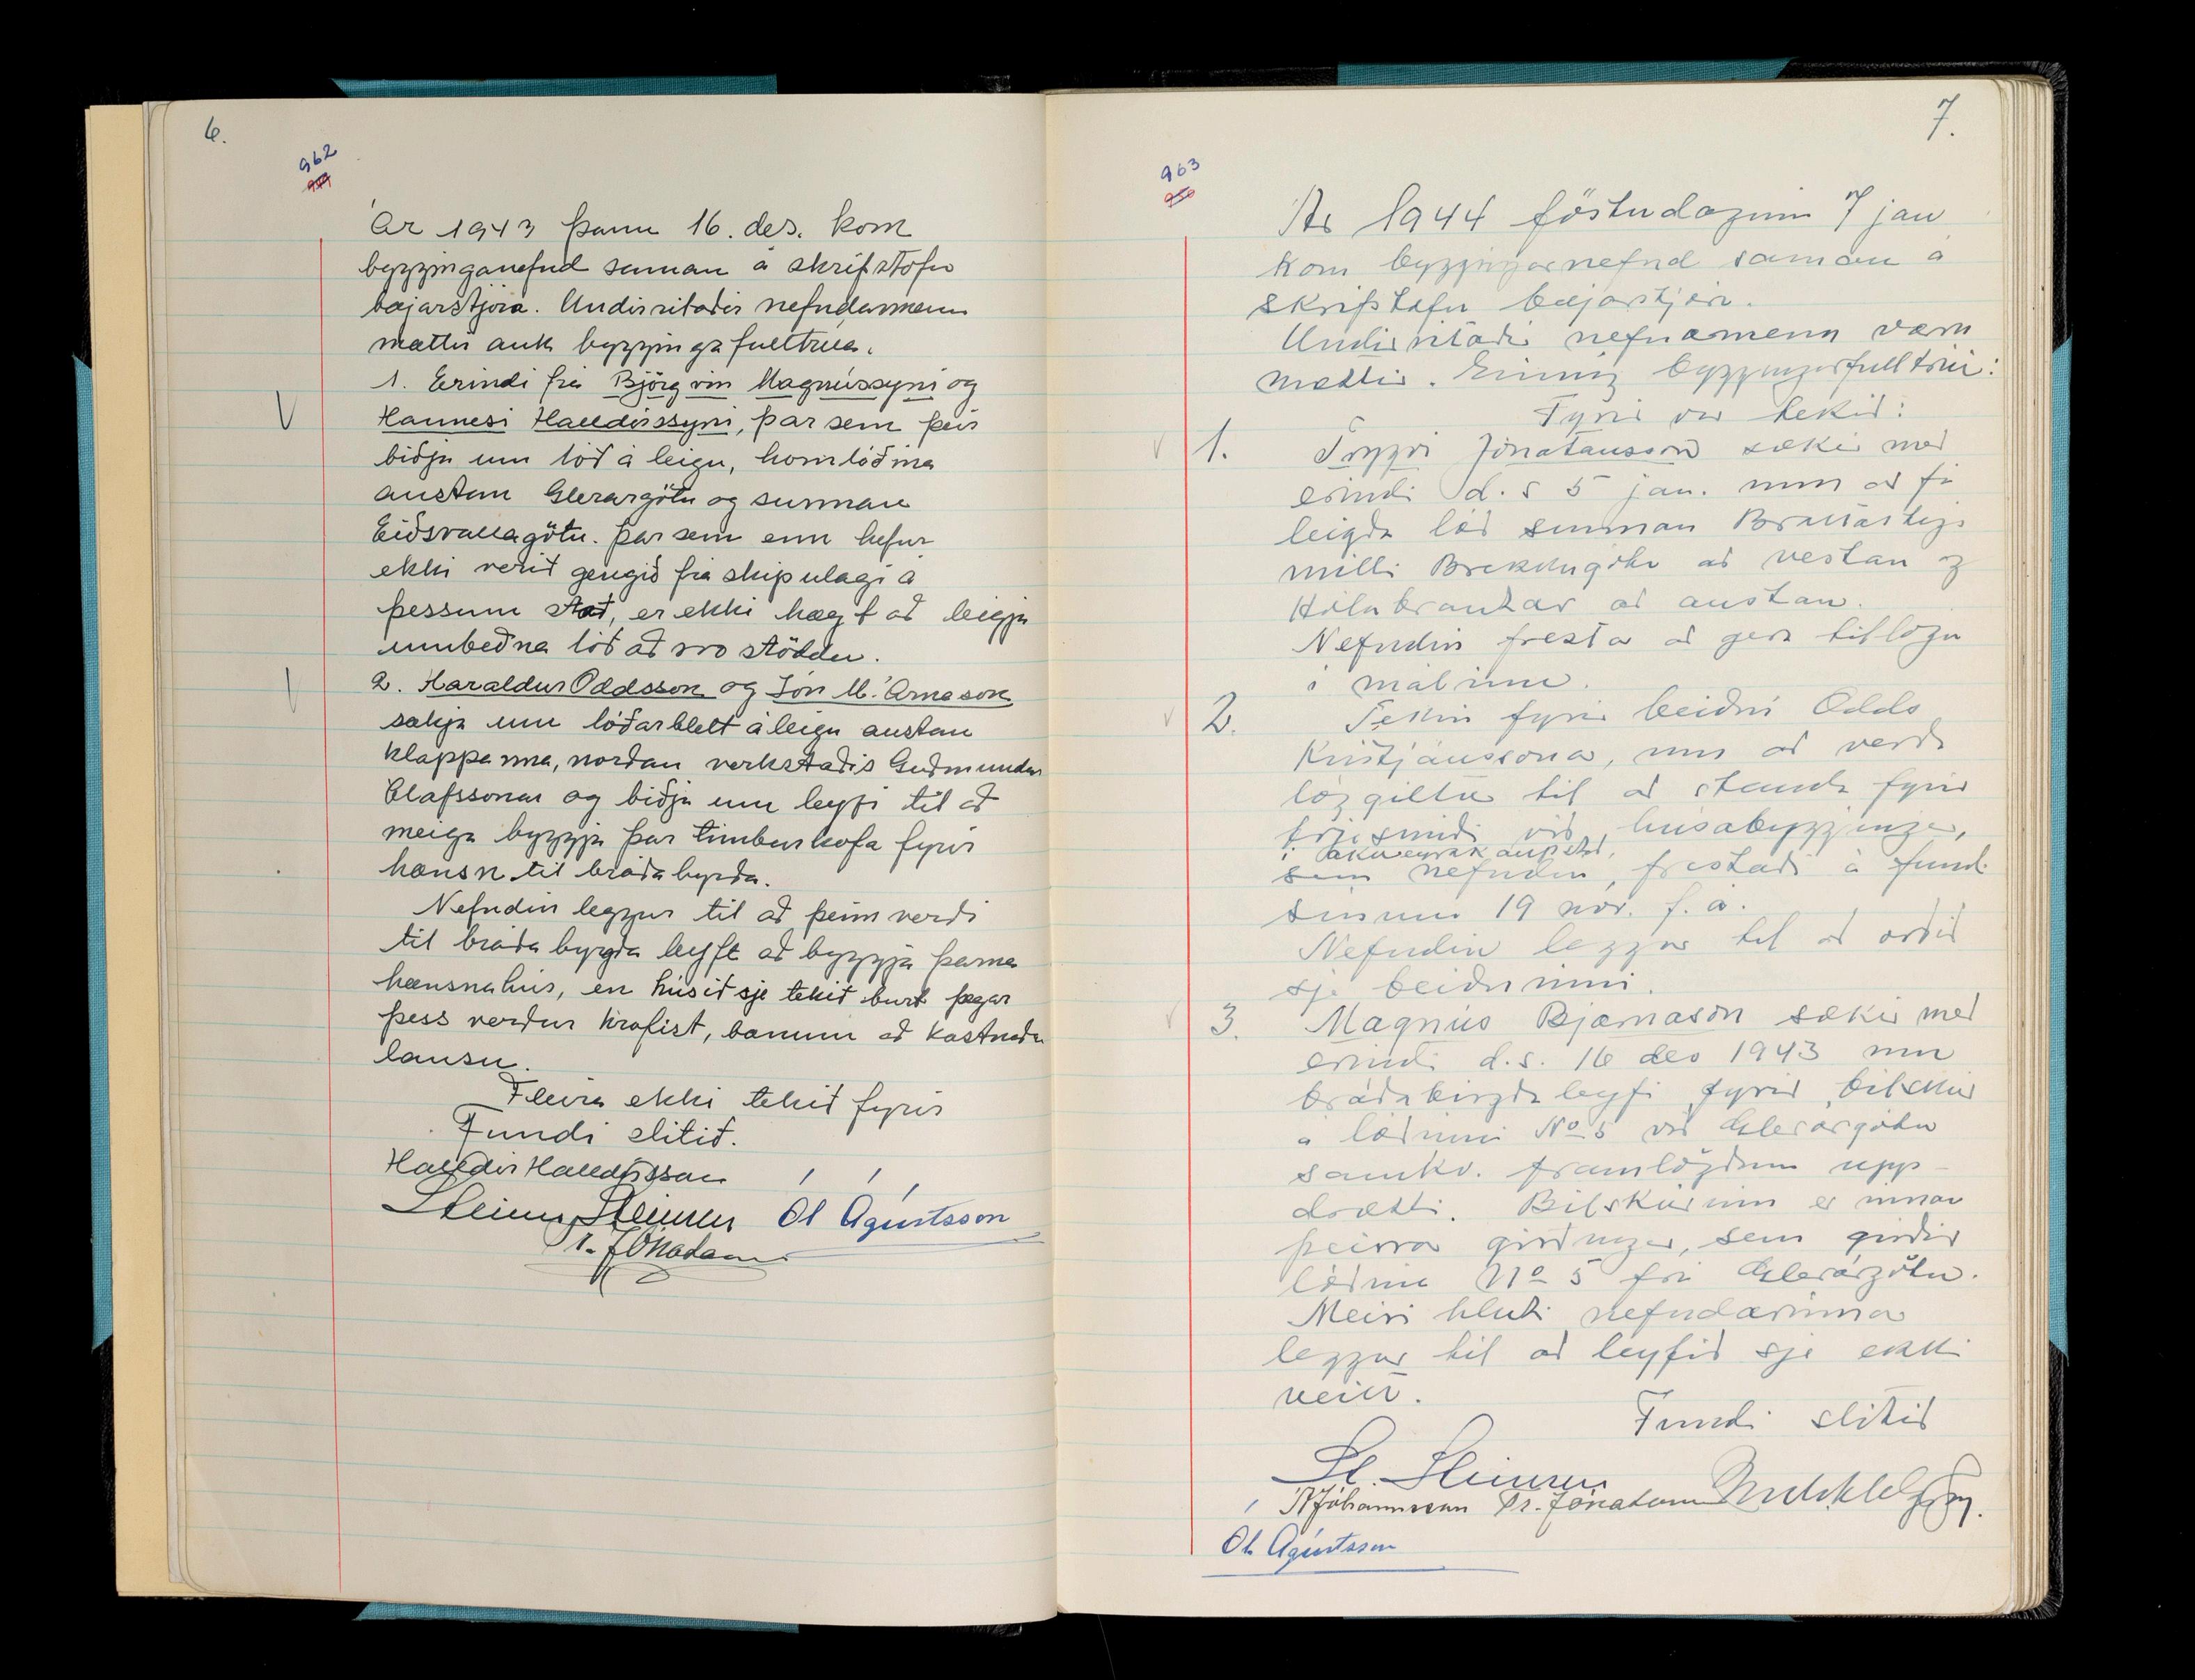 6.
962
Ár 1943 þann 16. des. kom
bygginganefnd saman á skrifstofu
bæjarstjóra. Undirritaðir nefndarmenn
mættu auk byggingafulltrúa.
1. Erindi frá Björgvin Magnússyni og
Hannesi Halldórssyni, þar sem þeir
biðja um lóð á leigu, hornlóðina
austan Glerárgötu og sunnan
Eiðsvallagötu. Þar sem enn hefur
ekki verið gengið frá skipulagi á
þessum stað, er ekki hægt að leigja
umbeðna lóð að svo stöddu.
2. Haraldur Oddsson og Jón M. Árnason
sækja um lóðarblett á leigu austan
klappanna, norðan verkstæðis Guðmundar
Ólafssonar og biðja um leyfi til að
meiga byggja þar timburkofa fyrir
hænsn til bráðabyrgða.
Nefndin leggur til að þeim verði
til bráðabyrgða leyft að byggja þarna
hænsnahús, en húsið sje tekið burt þegar
þess verður krafist, bænum að kostnaðar
lausu.
Fleira ekki tekið fyrir
Fundi slitið.
Halldór Halldórsson
Steinn Steinsen Ól Ágústsson
Tr. Jónatansson
7.
963
Ár 1944 föstudaginn 7 jan
kom byggingarnefnd saman á
skrifstofu bæjarstjóra.
Undirritaðir nefnamenn voru
mættir. Einnig byggingarfulltrúi:
Fyrir var tekið:
1. Tryggvi Jónatansson sækir með
erindi d.s 5 jan. um að fá
leigða lóð sunnan Brattastígs
milli Brekkugötu að vestan og
Hólabrautar að austan.
Nefndin frestar að gera tillögu
í málinu.
2. Tekin fyrir beiðni Odds
Kristjánssonar, um að verða
löggiltur til að standa fyrir
trjésmíði við húsabyggingar,
í Akureyrarkaupstað,
sem nefndin, frestaði á fundi
sínum 19 nóv. f. á.
Nefndin leggur til að orðið
sje beiðninni.
3. Magnús Bjarnason sækir með
erindi d.s. 16 des 1943 um
bráðabirgðaleyfi fyrir bílskúr
á lóðinni No 5 við Glerárgötu
samkv. framlögðum upp-
drætti. Bílskúrinn er innan
þeirrar girðingar, sem girðir
lóðina No 5 frá Glerárgötu.
Meiri hluti nefndarinnar
leggur til að leyfið sje ekki
veitt.
Fundi slitið
St. Steinsen
Tr. Jónatansson
Ól. Ágústsson